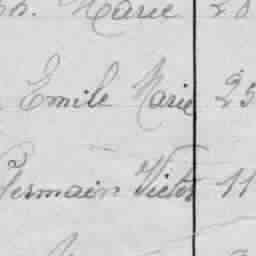 Marie 20
Emile Marie 25
Germain Victor 11